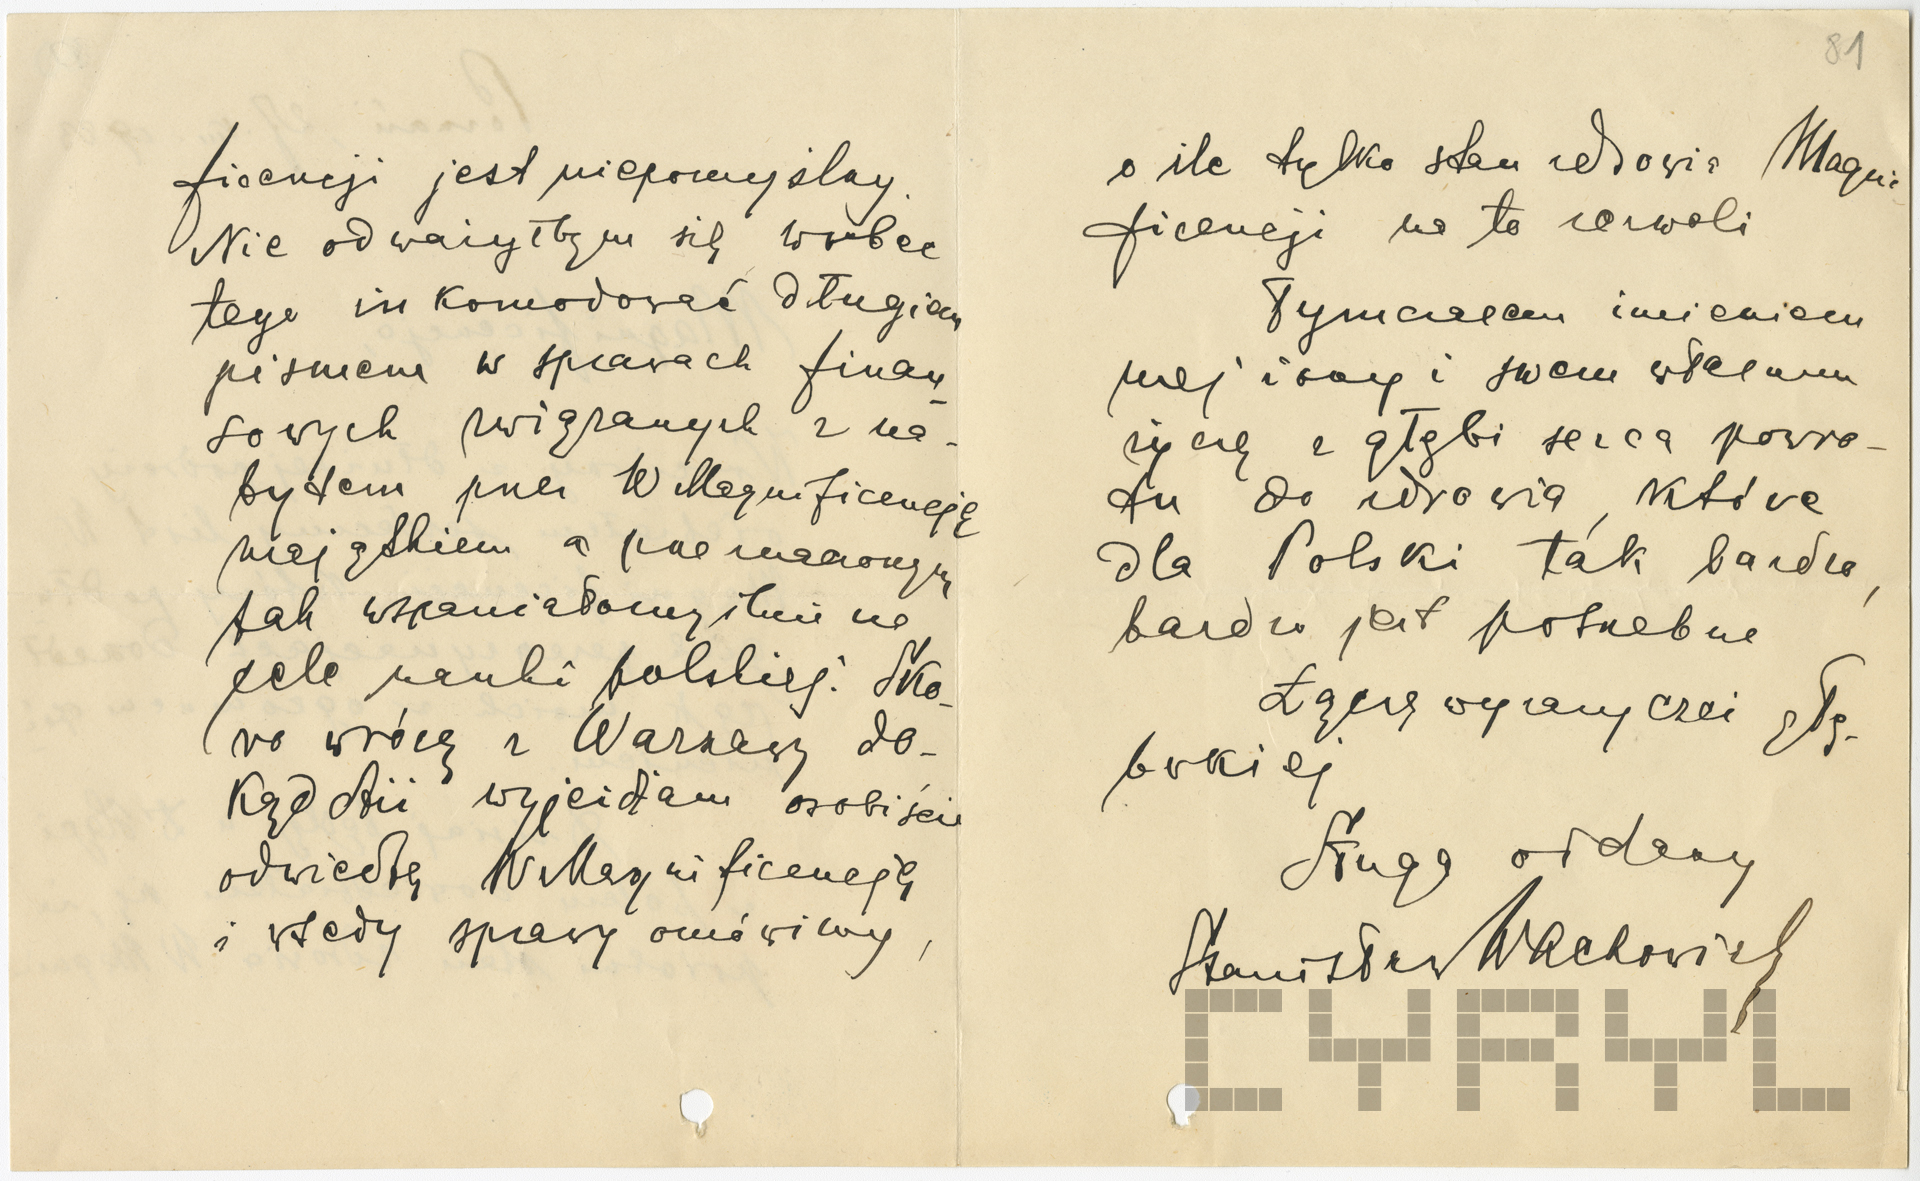 ficencji jest niepomyślny.
Nie odważyłbym się wobec
tego inkomodować długiem
pismem w sprawach finan-
sowych związanych z na-
bytem przez W Magnificencję
majątkiem a przeznaczonym
tak wspaniałomyślnie na
cele nauki polskiej. Sko-
ro wrócę z Warszawy do-
kąd dziś wyjeżdżam osobiście
odwiedzę W Magnificencję
i wtedy sprawy omówimy,
81
o ile tylko stan zdrowia Magni-
ficencji na to zezwoli
Tymczasem imieniem
mej żony i swem własnem
życzę z głębi serca powro-
tu do zdrowia, które
dla Polski tak bardzo,
bardzo jest potrzebne
Łączę wyrazy czci głę-
bokiej
Sługa oddany
Stanisław Wachowiak
CYRYL